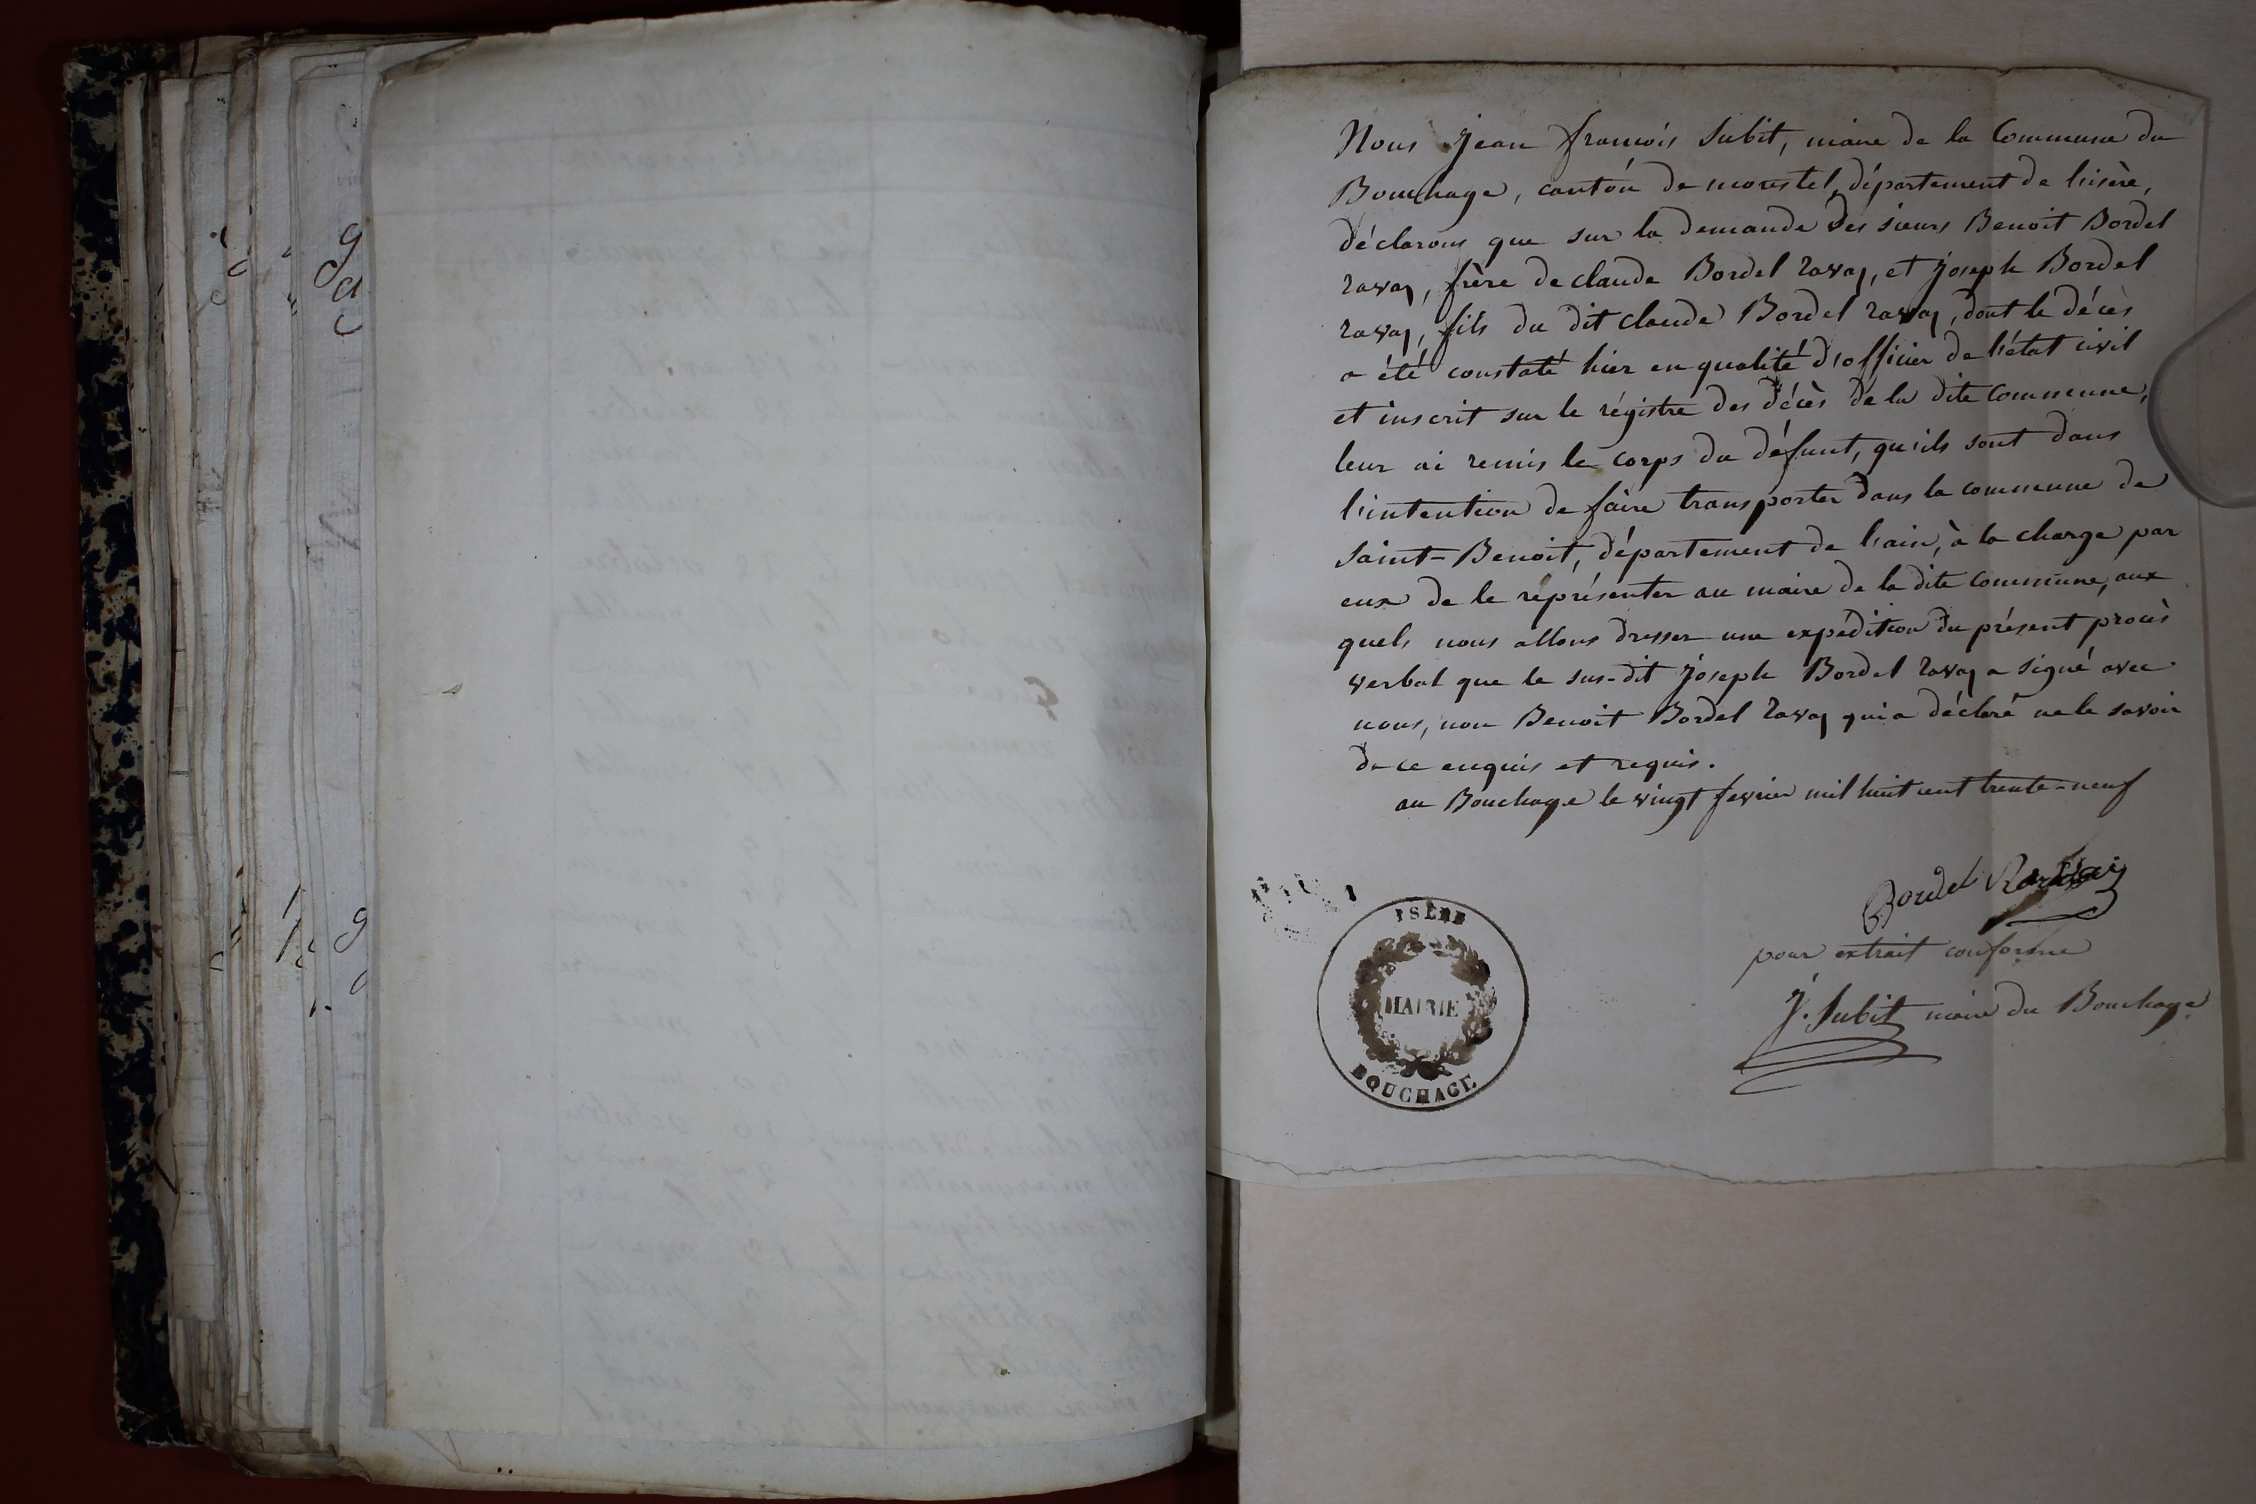 Nous Jean françois Subit, maire de la Commune du
Bouchage, cantón de morestel, département de l'isère,
déclarons que sur la demande des sieurs Benoit Bordel
ravaz, frère de claude Bordel ravaz, et joseph Bordel
ravaz, fils du dit claude Bordel ravaz, dont le décès
a été constaté hier en qualité d'officier de l'état civil
et inscrit sur le régistre des décès de la dite commune,
leur ai remis le corps du défunt, qu'ils sont dans
l'intention de faire transporter dans la commune de
Saint-Benoit, département de l'ain, à la charge par
eux de le réprésenter au maire de la dite commune, aux
quels nous allons dresser une expédition du présent procès
verbal que le sus-dit joseph Bordel ravaz a signé avec
nous, non Benoit Bordel ravaz qui a déclaré ne le savoir
de ce enquis et requis.
au Bouchage le vingt fevrier mil huit cent trente-neuf
Bordel
pour extrait conforme
J. Subit maire du Bouchage
ISÈRE
MAIRIE
BOUCHAGE